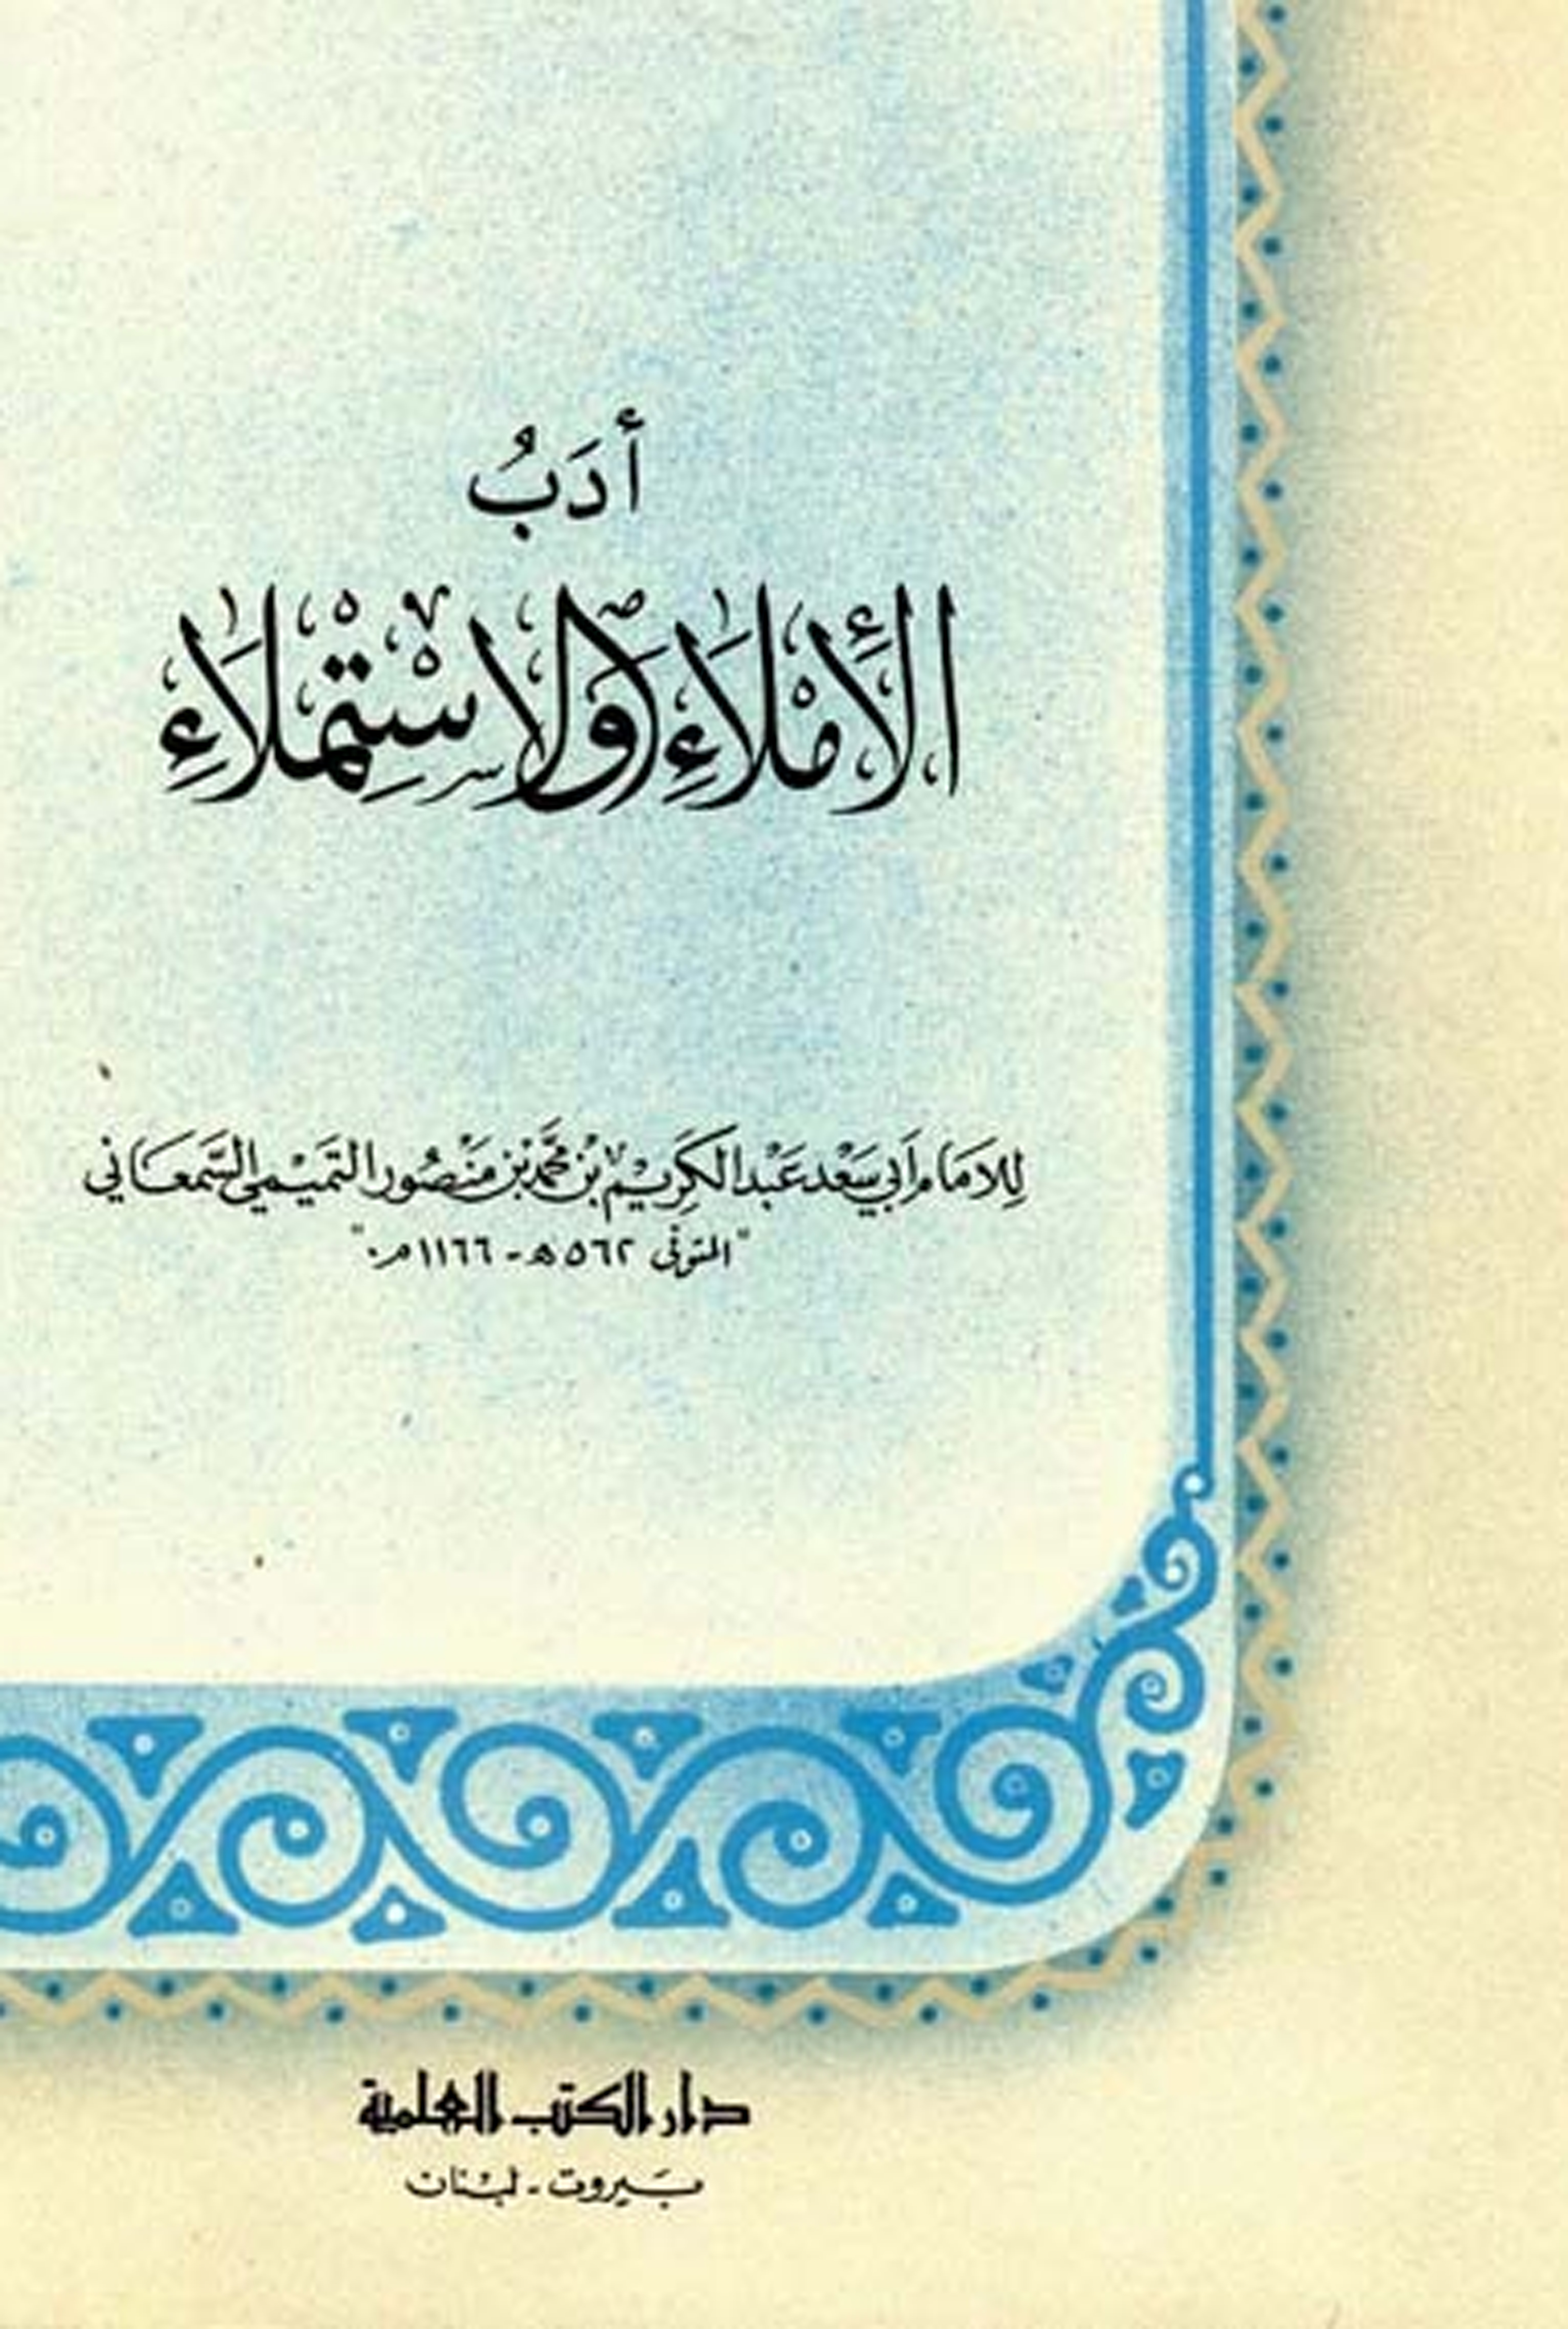 أدَبُ
الأِمْلَاءِ وَالاسْتِمْلَاءِ
للامَام أَبي سَعْد عَبْد الكَرِيْم بْن مُحَمَّد بْن مَنْصُور التَمَيْمي السَّمعَاني
"المتوفى ٥٦٢ هـ - ١١٦٦ م."
دار الكتب العلمية
بَيروت - لبْنان